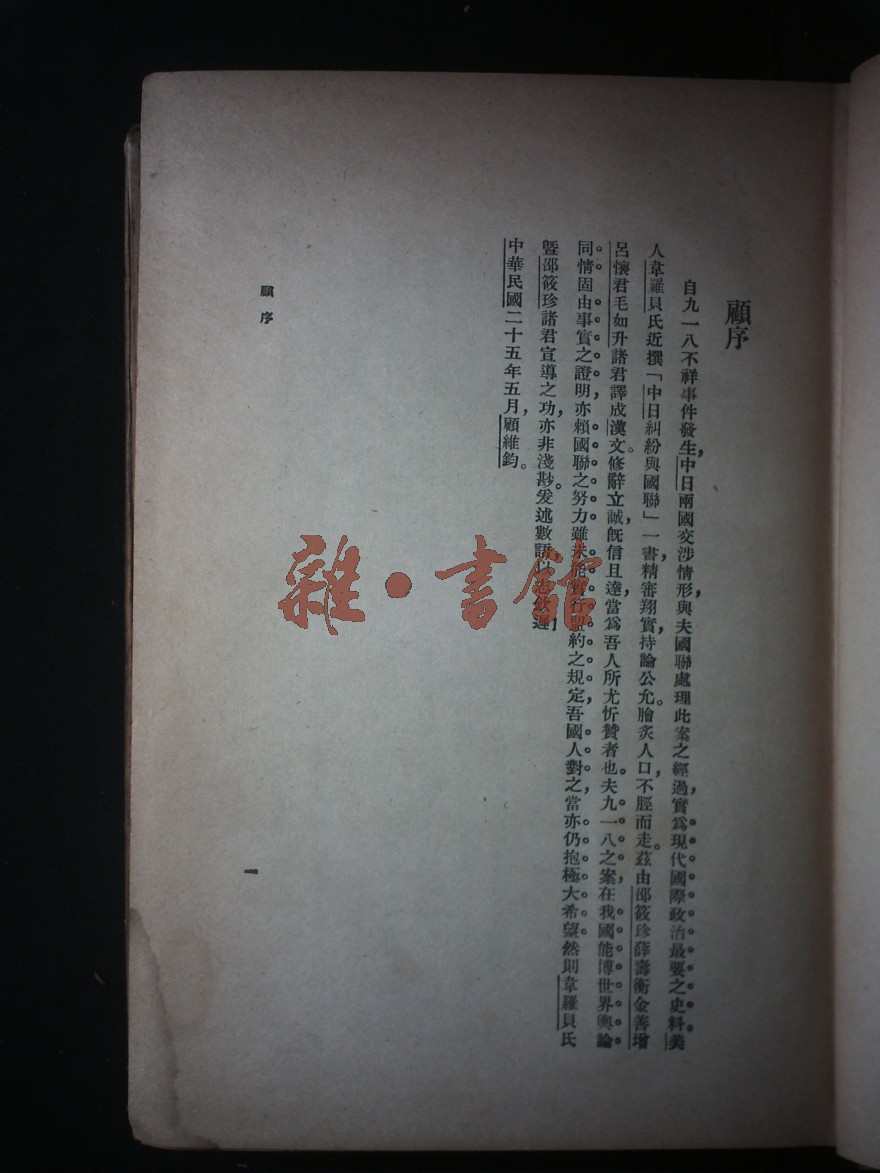 顧序
自九一八不祥事件發生，中日兩國交涉情形，與夫國聯處理此案之經過，實爲現代國際政治最要之史料。美
人韋羅貝氏近撰「中日糾紛與國聯」一書，精審翔實，持論公允。膾炙人口，不脛而走。茲由邵筱珍薛壽衡金善增
呂懷君毛如升諸君譯成漢文。修辭立誠，旣信且達，當爲吾人所尤忻贊者也。夫九一八之案，在我國能博世界輿論
同情，固由事實之證明，亦賴國聯之努力。雖未能實行盟約之規定，吾國人對之，當亦仍抱極大希望。然則韋羅貝氏
曁邵筱珍諸君宣導之功，亦非淺尠。爰述數語，以志歡迎！
中華民國二十五年五月，顧維鈞。
顧序
一
雜·書館